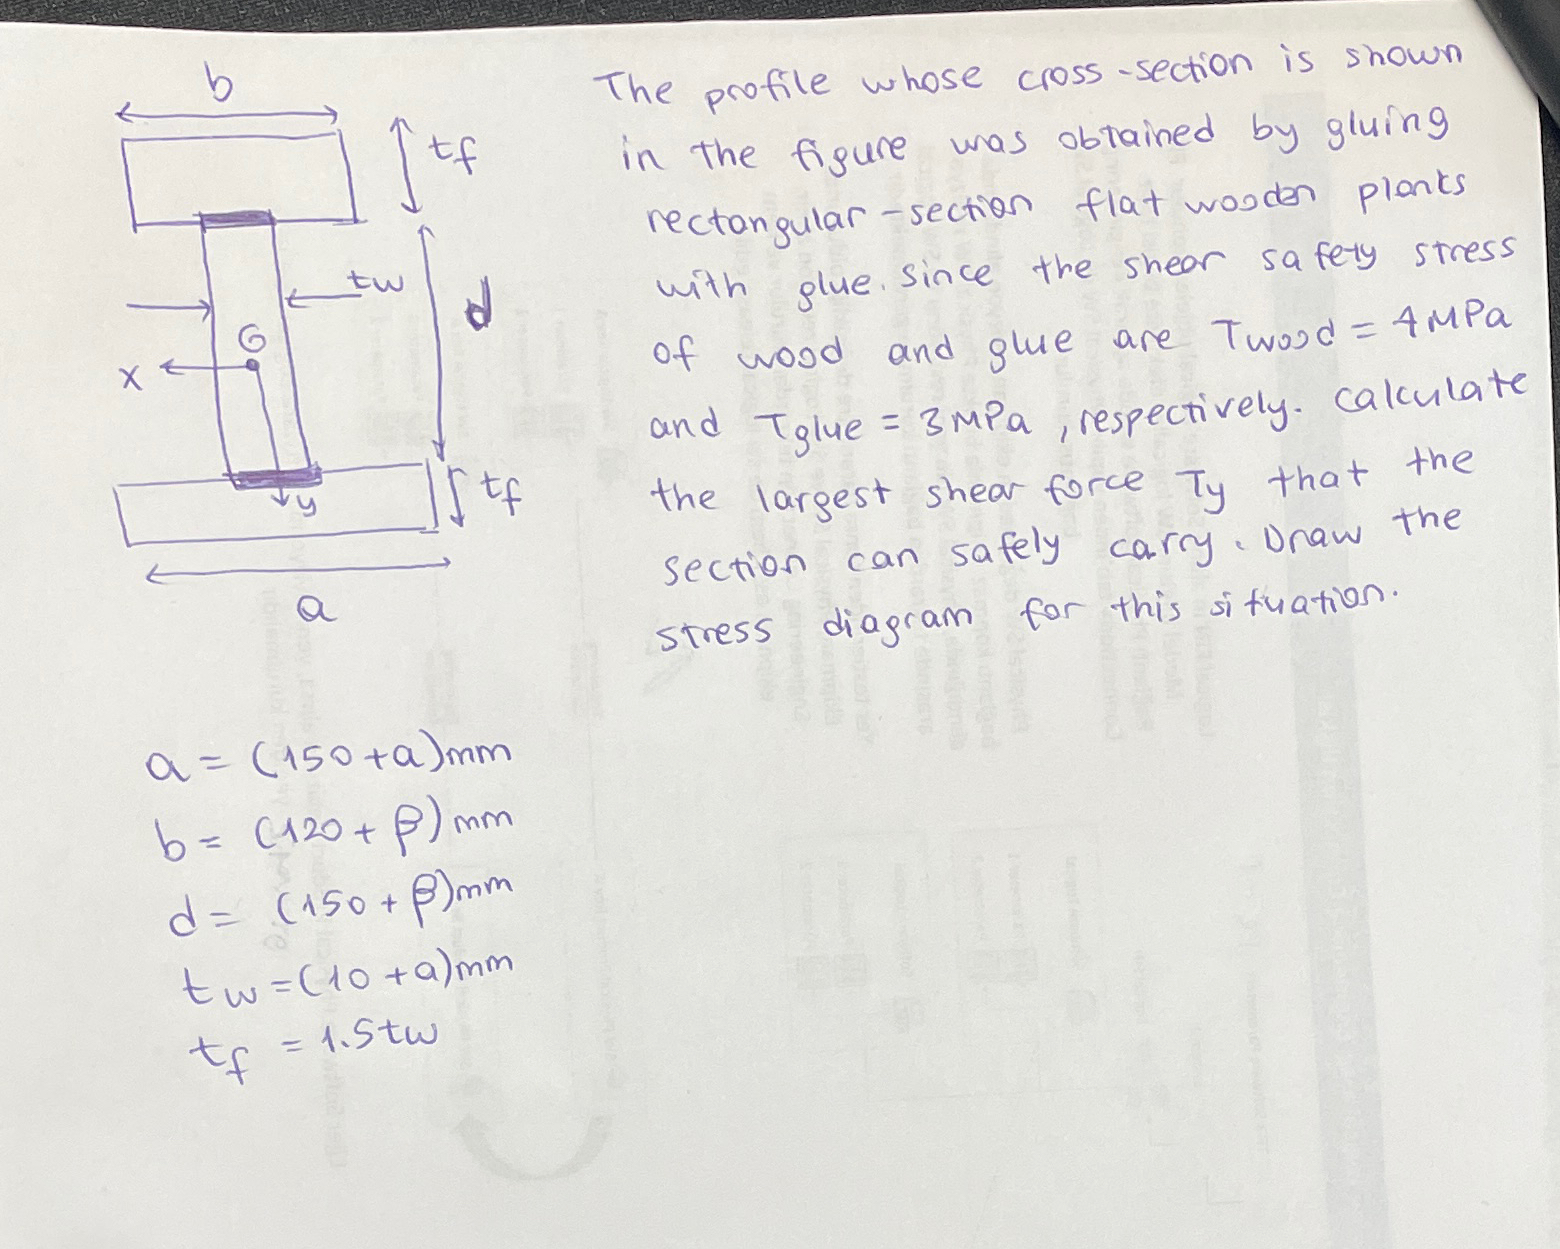 b
The profile whose cross-section is shown
tf
in the figure was obtained by gluing
rectangular-section flat wooden planks
tw
with glue. since the shear safety stress
d
G
of wood and glue are Twood = 4MPa
x
and τglue = 3MPa, respectively. calculate
tf
the largest shear force Ty that the
y
section can safely carry. Draw the
a
stress diagram for this situation.
a = (150+a)mm
b = (120+β)mm
d = (150+β)mm
tw = (10+a)mm
tf = 1.5tw